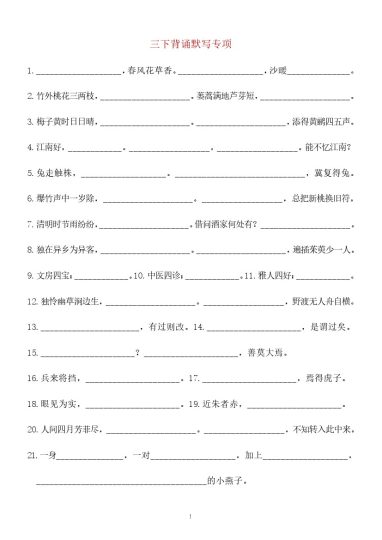 三下背诵默写专项
1.____________________,春风花草香。____________________,沙暖_______________。
2.竹外桃花三两枝,____________________。蒌蒿满地芦芽短,____________________。
3.梅子黄时日日晴,____________________。____________________,添得黄鹂四五声。
4.江南好,____________。____________________,____________________。能不忆江南?
5.兔走触株,____________________。____________________,冀复得兔。
6.爆竹声中一岁除,____________________。____________________,总把新桃换旧符。
7.清明时节雨纷纷,____________________。借问酒家何处有?____________________。
8.独在异乡为异客,____________________。____________________,遍插茱萸少一人。
9.文房四宝:____________。10.中医四诊:____________。11.雅人四好:____________。
12.独怜幽草涧边生,____________________。____________________,野渡无人舟自横。
13.____________________,有过则改。14.____________________,是谓过矣。
15.____________________?____________________,善莫大焉。
16.兵来将挡,____________________。17.____________________,焉得虎子。
18.眼见为实,____________________。19.近朱者赤,____________________。
20.人间四月芳菲尽,____________________。____________________,不知转入此中来。
21.一身_______________,一对____________________,加上____________________,
________________________________________的小燕子。
1